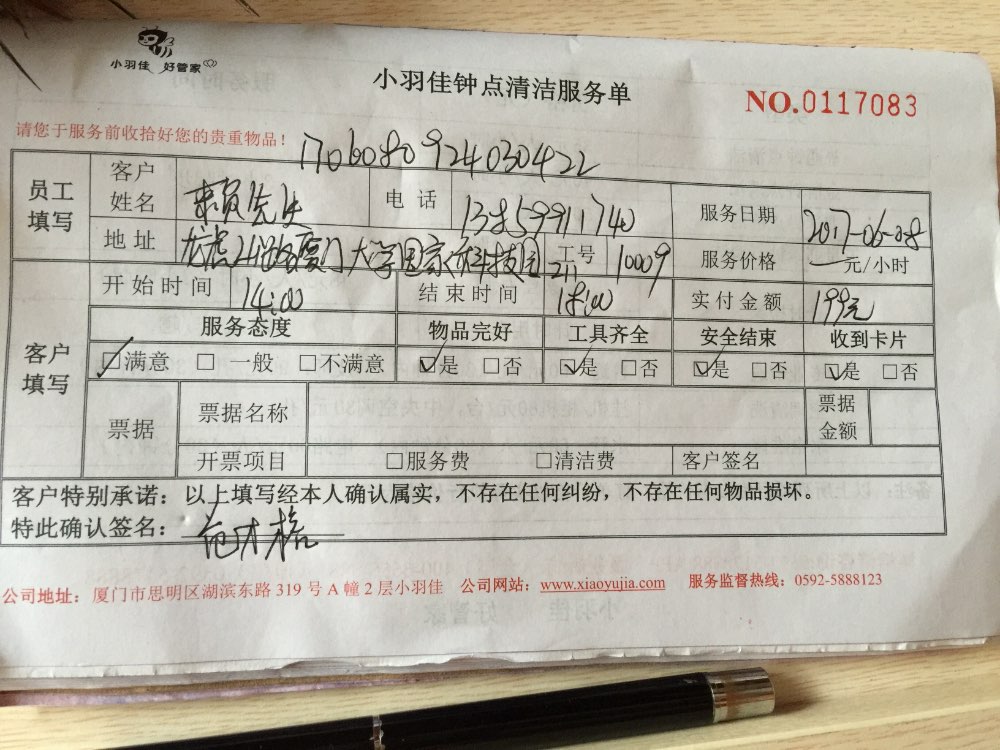 小羽佳 好管家
小羽佳钟点清洁服务单
NO.0117083
请您于服务前收拾好您的贵重物品!
1706080924030422
员工填写 客户姓名 赖先生 电话 13859911740 服务日期 2017-06-08
地址 厦门大学国家科技园 211 工号 10009 服务价格 一元/小时
开始时间 14:00 结束时间 18:00 实付金额 199元
客户填写 服务态度 物品完好 工具齐全 安全结束 收到卡片
☑满意 □一般 □不满意 ☑是 □否 ☑是 □否 ☑是 □否 ☑是 □否
票据 票据名称 票据金额
开票项目 □服务费 □清洁费 客户签名
客户特别承诺:以上填写经本人确认属实,不存在任何纠纷,不存在任何物品损坏。
特此确认签名:
公司地址:厦门市思明区湖滨东路 319 号 A 幢 2 层小羽佳 公司网站:www.xiaoyujia.com 服务监督热线:0592-5888123